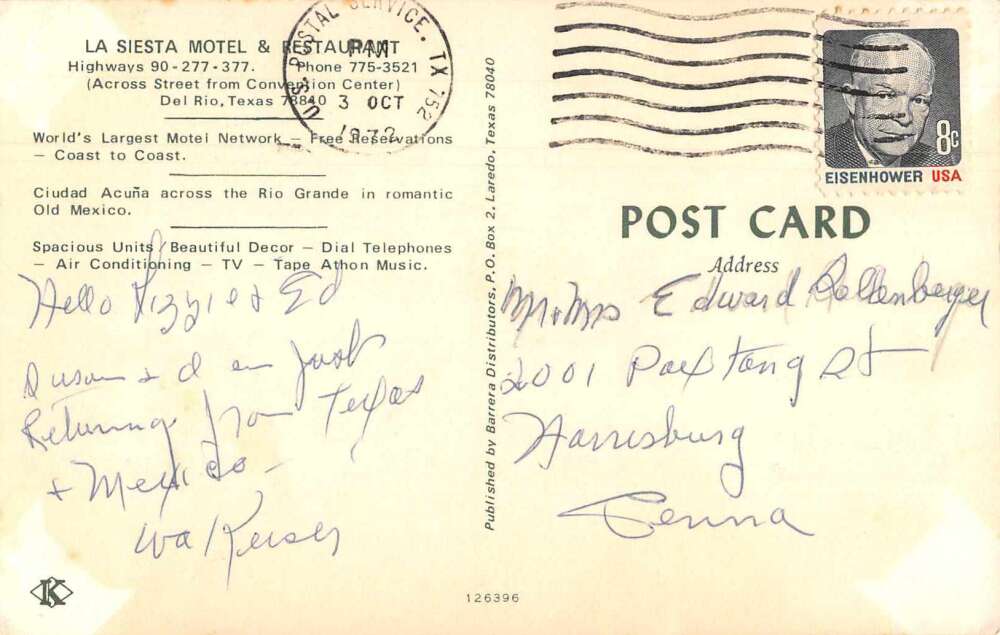 LA SIESTA MOTEL & RESTAURANT
Highways 90-277-377. Phone 775-3521
(Across Street from Convention Center)
Del Rio, Texas 78840
World's Largest Motel Network — Free Reservations
— Coast to Coast.
Ciudad Acuña across the Rio Grande in romantic
Old Mexico.
Spacious Units Beautiful Decor — Dial Telephones
— Air Conditioning — TV — Tape Athon Music.
Hello Lizzie & Ed
Susan & I am just
Returning from Texas
& Mexico —
U.S. POSTAL SERVICE. TX 752
PM
3 OCT
1972
8c
EISENHOWER USA
Published by Barrera Distributors, P.O. Box 2, Laredo, Texas 78040
POST CARD
Address
Mr & Mrs Edward
2001 Paxtang St
Harrisburg
Penna
K
126396